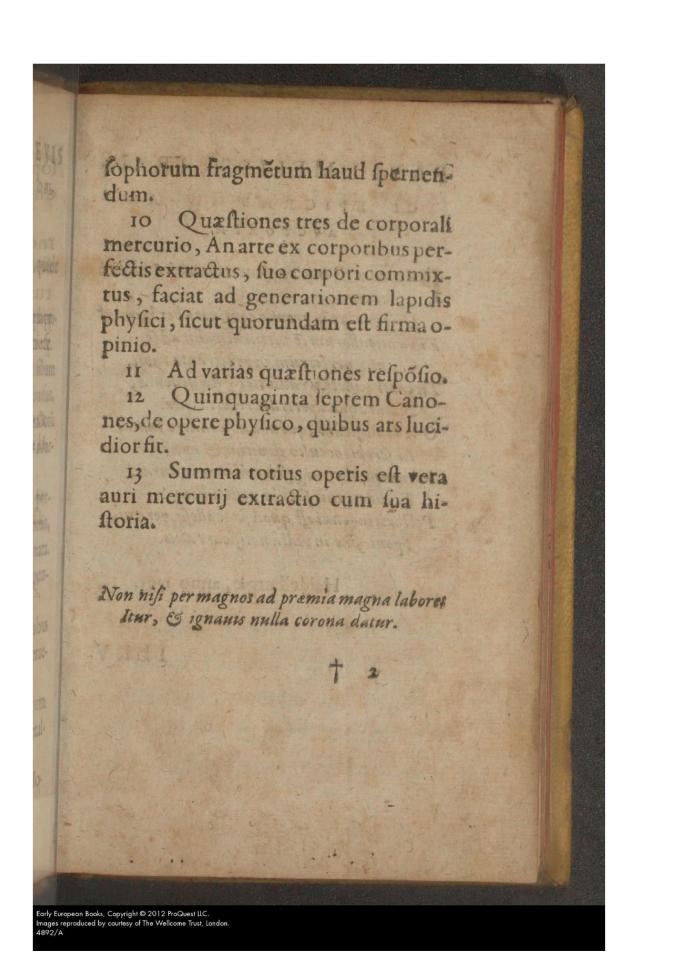 ſophorum fragmẽtum haud ſpernen-
dum.
10 Quæſtiones tres de corporali
mercurio, An arte ex corporibus per-
fectis extractus, ſuo corpori commix-
tus, faciat ad generationem lapidis
phyſici, ſicut quorundam eſt firma o-
pinio.
11 Ad varias quæſtiones reſpõſio.
12 Quinquaginta ſeptem Cano-
nes, de opere phyſico, quibus ars luci-
dior fit.
13 Summa totius operis eſt vera
auri mercurij extractio cum ſua hi-
ſtoria.
Non niſi per magnos ad præmia magna labores
Itur, & ignauis nulla corona datur.
† 2
Early European Books, Copyright © 2012 ProQuest LLC.
Images reproduced by courtesy of The Wellcome Trust, London.
4892/A